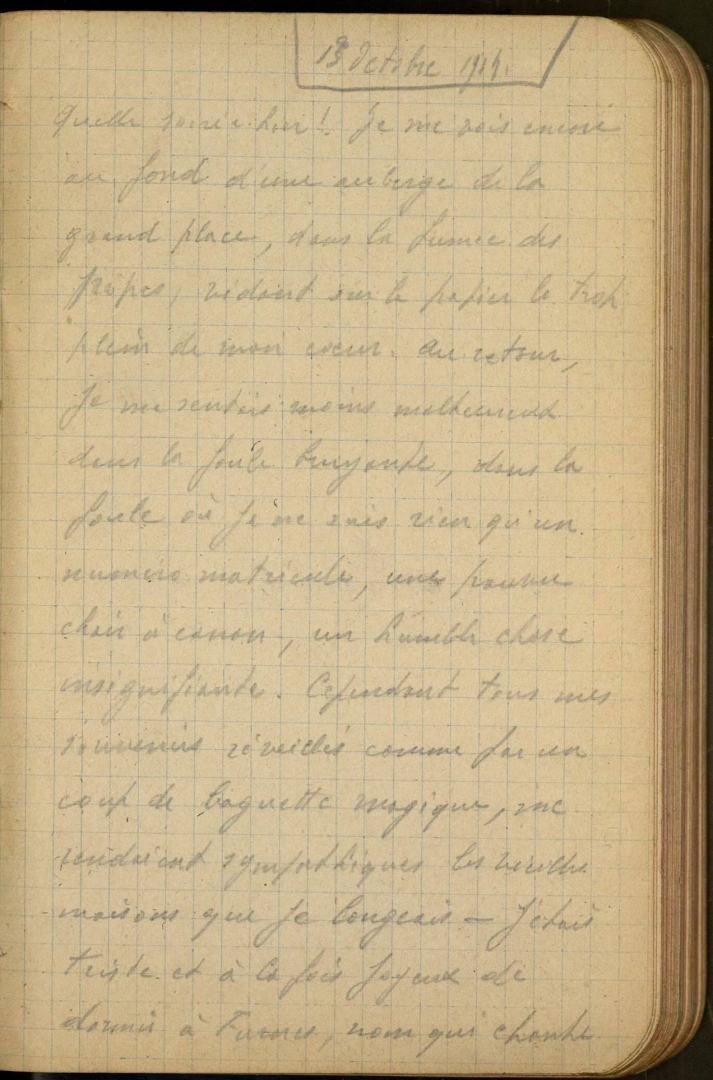 Octobre 1914.
Quelle soirée hier! Je me vois encore
au fond d'une auberge de la
grand place, dans la fumée des
pipes, vidant sur le papier le trop
plein de mon cœur. Au retour,
je me sentais moins malheureux
dans la foule bruyante, dans la
foule où je ne suis rien qu'un
numéro matricule, une pauvre
chair à canon, un humble chose
insignifiante. Cependant tous mes
souvenirs réveillés comme par un
coup de baguette magique, me
rendaient sympathiques les vieilles
maisons que je longeais – J'étais
triste et à la fois joyeux de
dormir à Furnes, nom qui chante